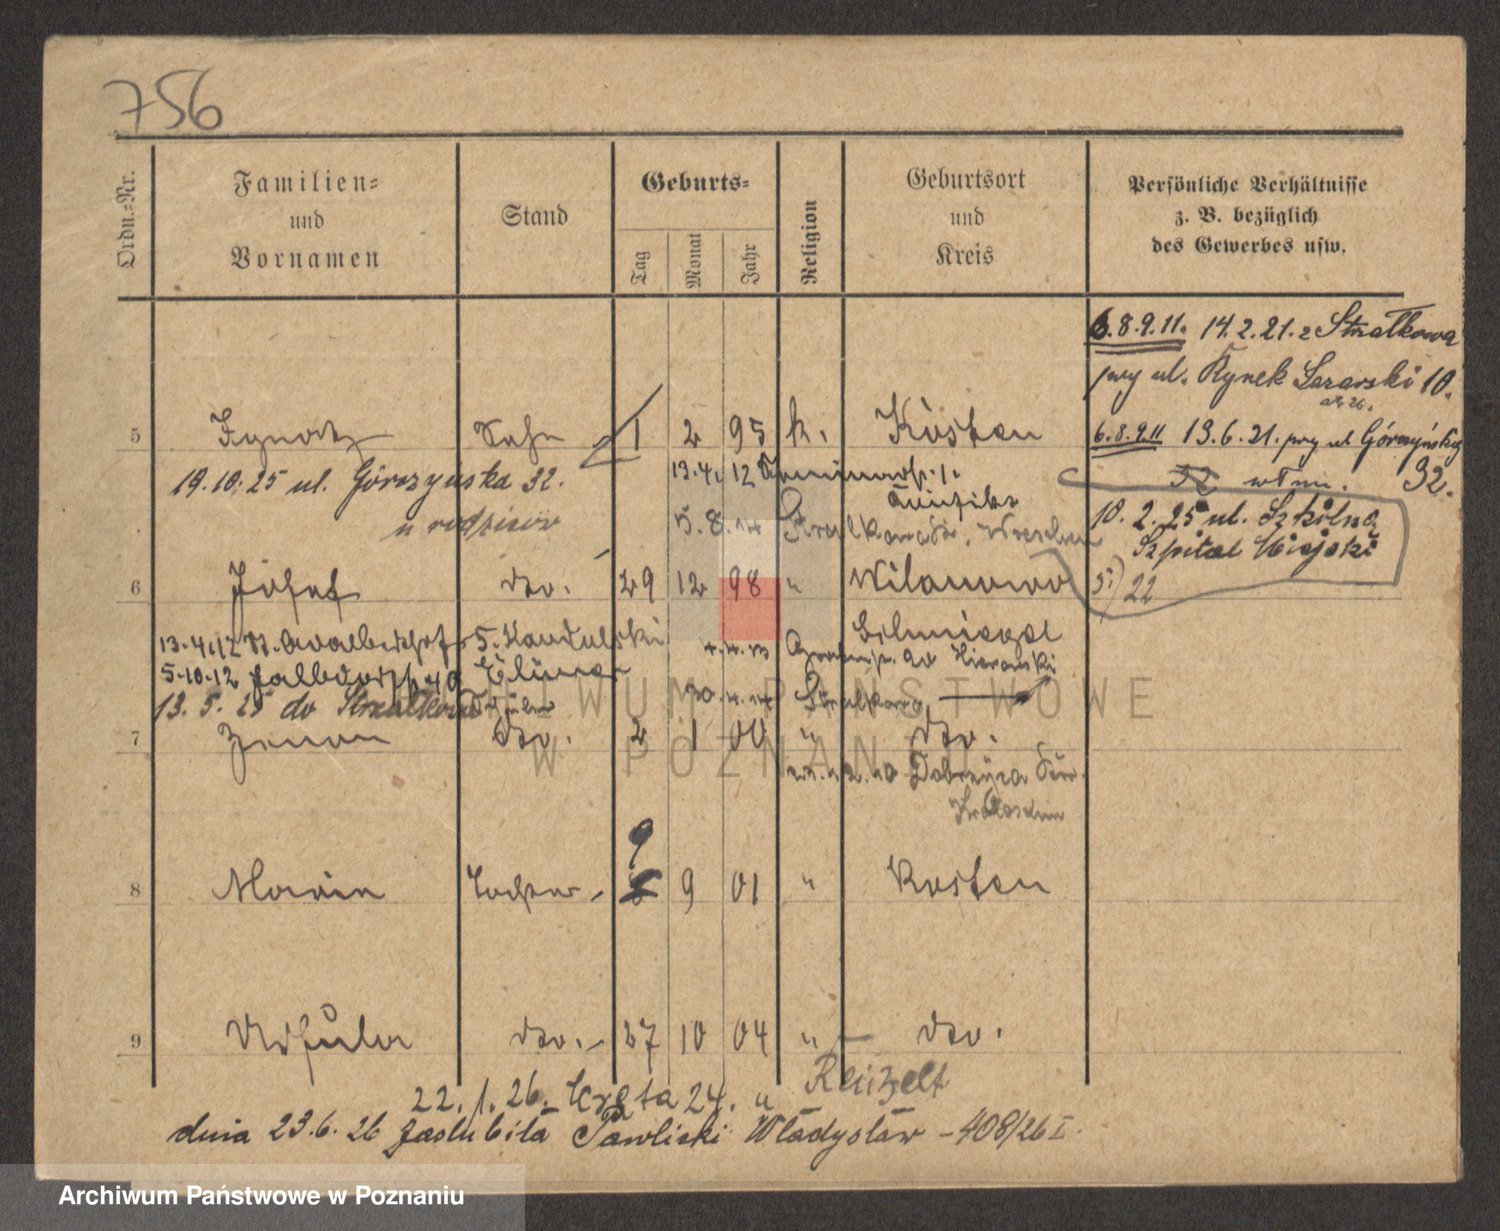 756
Ordn.-Nr.
Familien-
und
Vornamen
Stand
Geburts-
Tag
Monat
Jahr
Religion
Geburtsort
und
Kreis
Persönliche Verhältnisse
z. B. bezüglich
des Gewerbes usw.
6.8.9.11. 14.2.21. z Strałkowa
przy ul. Rynek Łazarski 10.
5 Ignatz Sohn 1 2 95 k. Kosten
6.8.9.11 13.6.21. przy ul Górczyńskiej
32.
19.10.25 ul. Górczyńska 32.
13.4.12
u rodziców
5.8.14
10.2.25 ul. Szkolna
Szpital Miejski
6 Josef dto. 29 12 98 " Wilanowo
5.) 22
13.4.12
5.10.12
Schmiegel
13.5.25 do Strzałkowa Schüler
7 Zenon dto. 2 1 00 " dto.
Dobrzyca
8 Maria Tochter 9 9 01 " Kosten
9 Ursula dto. 27 10 04 " dto.
22.1.26. Kręta 24. u Reizelt
dnia 23.6.26 zaślubiła Pawlicki Władysław - 408/26 I.
ARCHIWUM PAŃSTWOWE
W POZNANIU
Archiwum Państwowe w Poznaniu